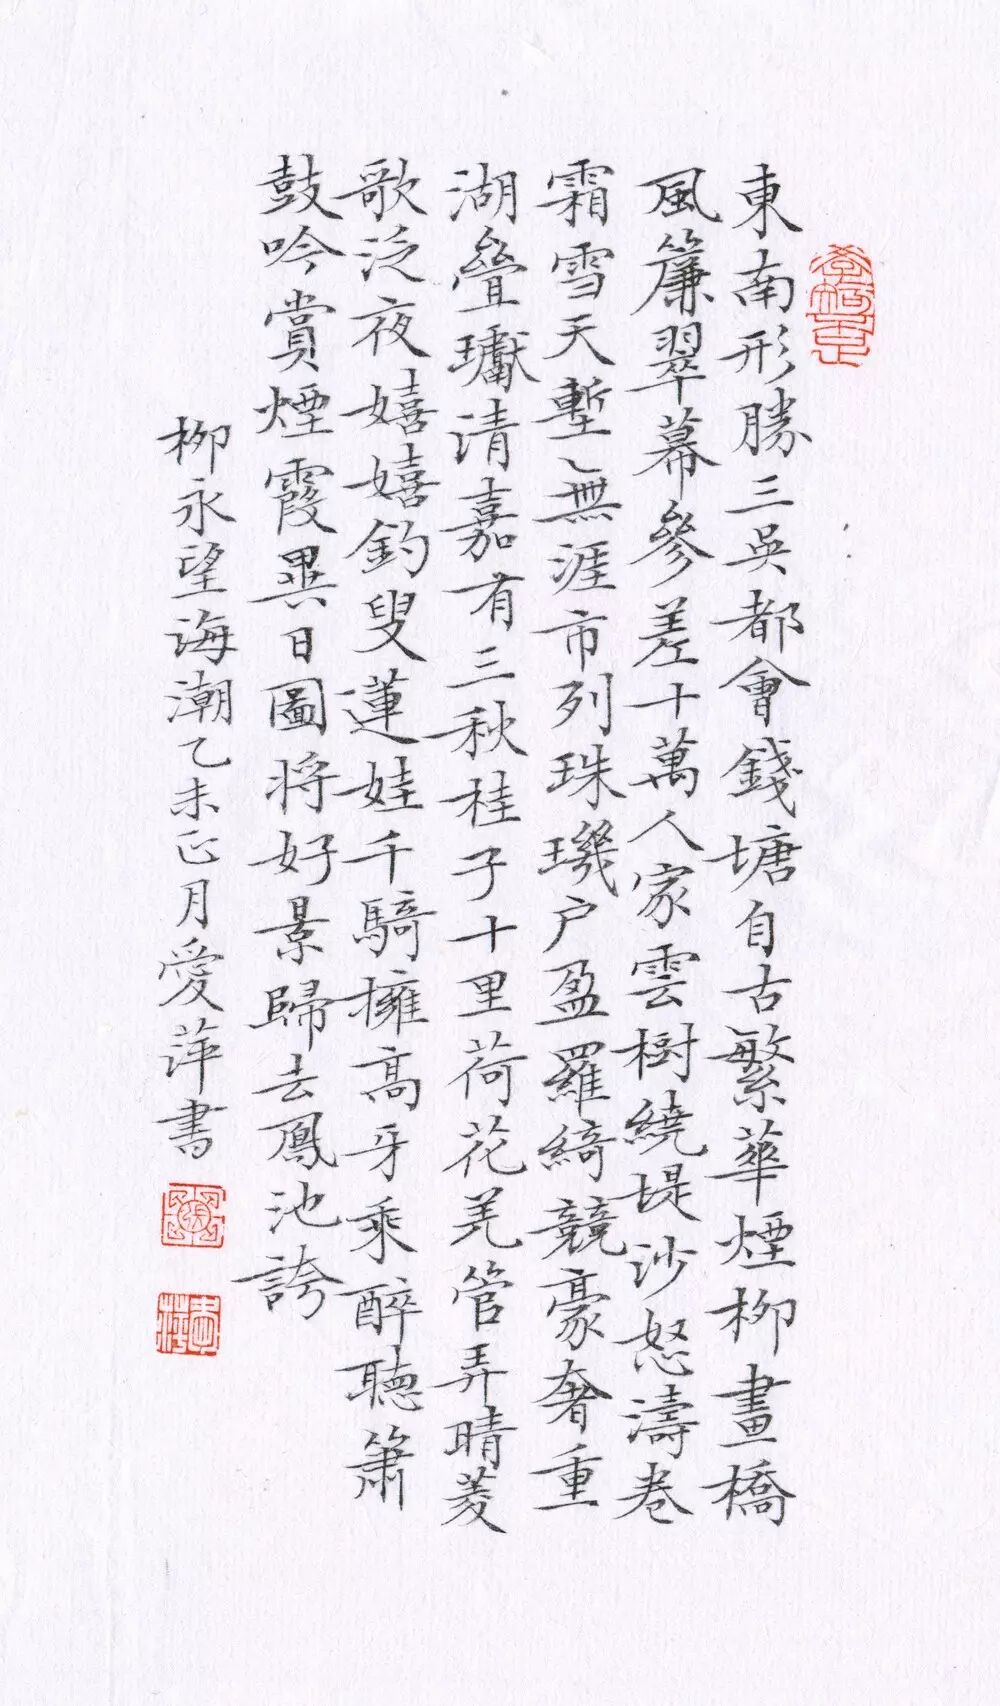 東南形勝三吳都會錢塘自古繁華煙柳畫橋
風簾翠幕參差十萬人家雲樹繞堤沙怒濤卷
霜雪天塹無涯市列珠璣户盈羅綺競豪奢重
湖疊巘清嘉有三秋桂子十里荷花羌管弄晴菱
歌泛夜嬉嬉釣叟蓮娃千騎擁高牙乘醉聽簫
鼓吟賞煙霞異日圖将好景歸去鳳池誇
柳永望海潮乙未正月愛萍書